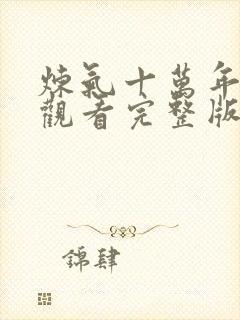 煉氣十萬年
觀看完整版
錦肆